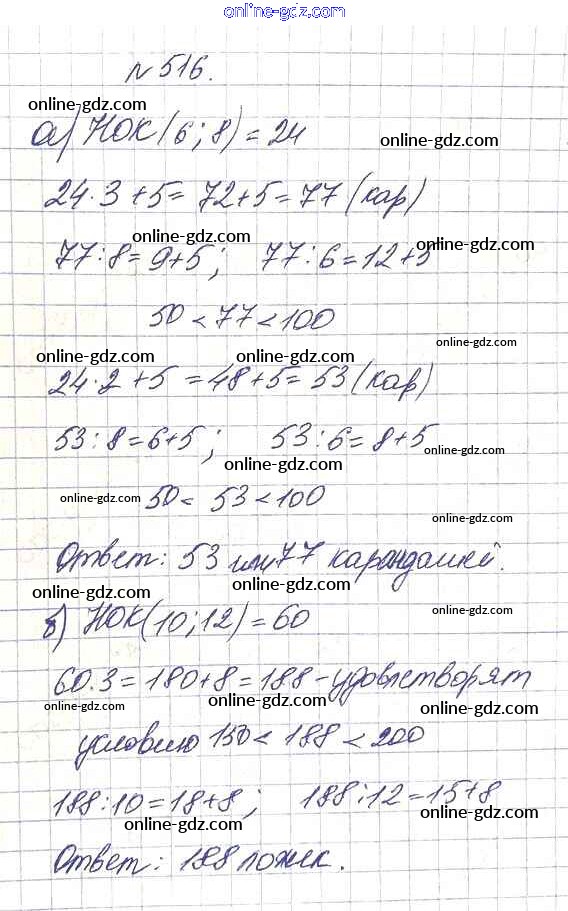 online-gdz.com
№ 516.
online-gdz.com
а) НОК(6;8) = 24
online-gdz.com
24·3+5= 72+5= 77 (кар)
online-gdz.com
77:8= 9+5; 77:6=12+5
online-gdz.com
50<77<100
online-gdz.com
online-gdz.com online-gdz.com
24·2+5 =48+5= 53 (кар)
53:8=6+5; 53:6= 8+5
online-gdz.com
online-gdz.com
50< 53<100
online-gdz.com
Ответ: 53 или 77 карандашей.
online-gdz.com online-gdz.com
б) НОК(10;12)=60
online-gdz.com
60·3=180+8=188-удовлетворят
online-gdz.com online-gdz.com online-gdz.com
условию 150< 188 <200
188:10=18+8; 188:12=15+8
online-gdz.com online-gdz.com
Ответ: 188 ложек.
online-gdz.com online-gdz.com